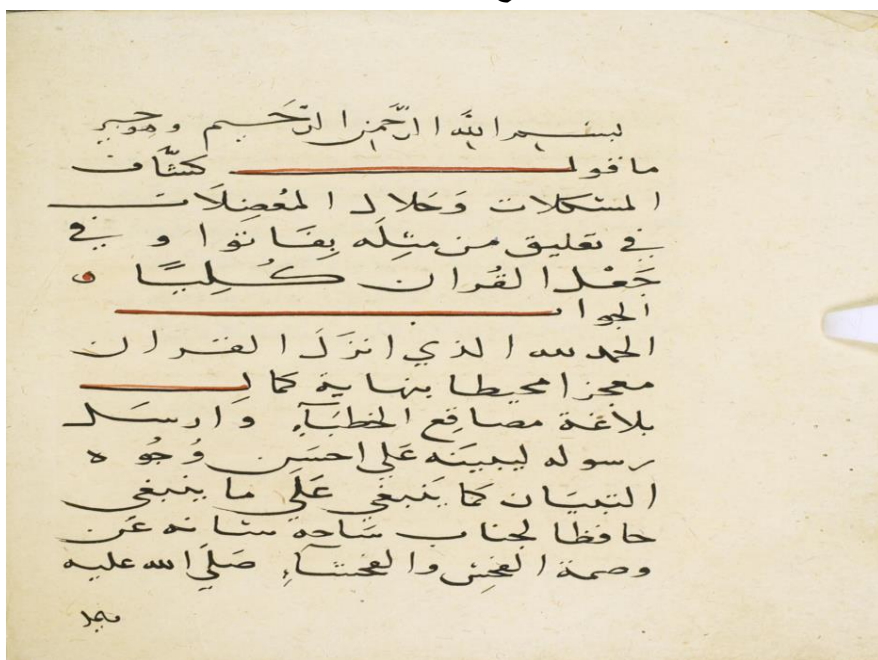 بسم الله الرَّحمن الرَّحَيم وهو حسبي
ما قول كشَّاف
المشكلات وَحَلال المعُضِلاَت
في تعليق من مثِلَه بِفَاتوا و في
جَعْل القُران كُليًا ه
الجواب
الحمد لله الذي انزَلَ القران
معجزا محيطا بنهاية كمال
بلاغة مصاقِع الخطبَآءِ وَارسَل
رسوله ليبينَه عَلي احسَن وُجُوه
التبيَان كما يَنبغي عَلَي ما ينبغي
حافظا لجناب سَاحه شانه عَن
وصمة الفحِش والفحشآءِ صَلَي الله عليه